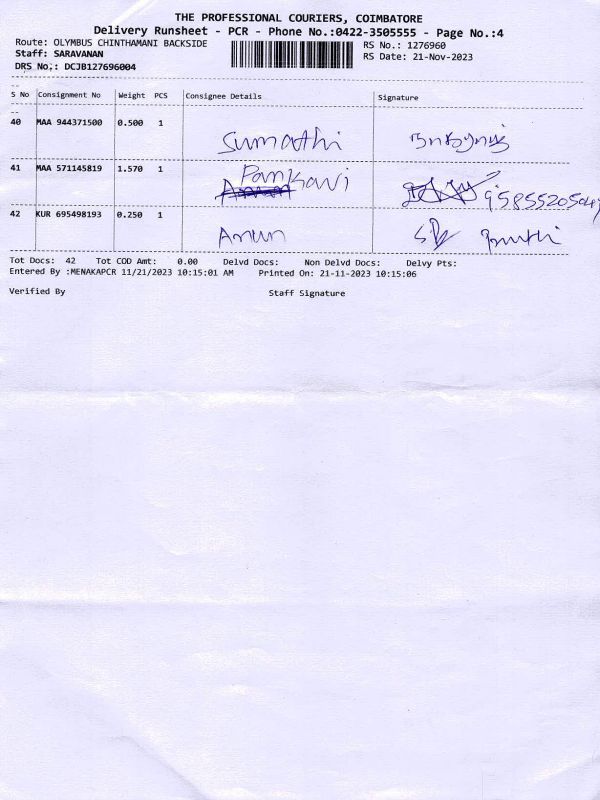 THE PROFESSIONAL COURIERS, COIMBATORE
Delivery Runsheet - PCR - Phone No.:0422-3505555 - Page No.:4
Route: OLYMBUS CHINTHAMANI BACKSIDE
RS No.: 1276960
Staff: SARAVANAN
RS Date: 21-Nov-2023
DRS No.: DCJB127696004
S No Consignment No Weight PCS Consignee Details Signature
40 MAA 944371500 0.500 1 Sumathi
41 MAA 571145819 1.570 1 Pankavi
42 KUR 695498193 0.250 1 Arun
Tot Docs: 42 Tot COD Amt: 0.00 Delvd Docs: Non Delvd Docs: Delvy Pts:
Entered By :MENAKAPCR 11/21/2023 10:15:01 AM Printed On: 21-11-2023 10:15:06
Verified By Staff Signature